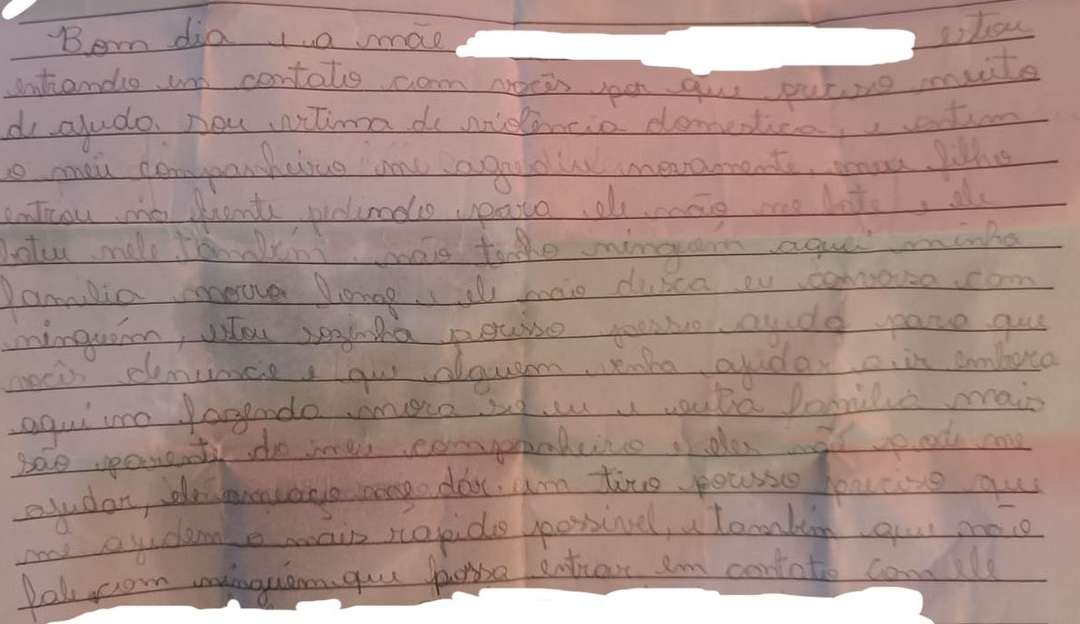 Bom dia e a mãe estou
entrando em contato com vocês por que preciso muito
de ajuda. sou vitima de violência domestica, e ontem
o meu companheiro me agrediu novamente, meu filho
entrou na frente pedindo para ele não me bate, ele
bateu nele também. não tenho ninguém aqui minha
familia morra longe e ele não deixa eu conversa com
ninguém, estou sozinha porisso peço ajuda para que
vocês denuncie e que alguem venha ajudar a ir embora
aqui na fazenda mora so eu e outra familia mais
são parente do meu companheiro e eles não pode me
ajudar, ele ameaça me dár um tiro porisso preciso que
me ajudem o mais rapido possivel, e também que não
fale com ninguém que possa entrar em contato com ele